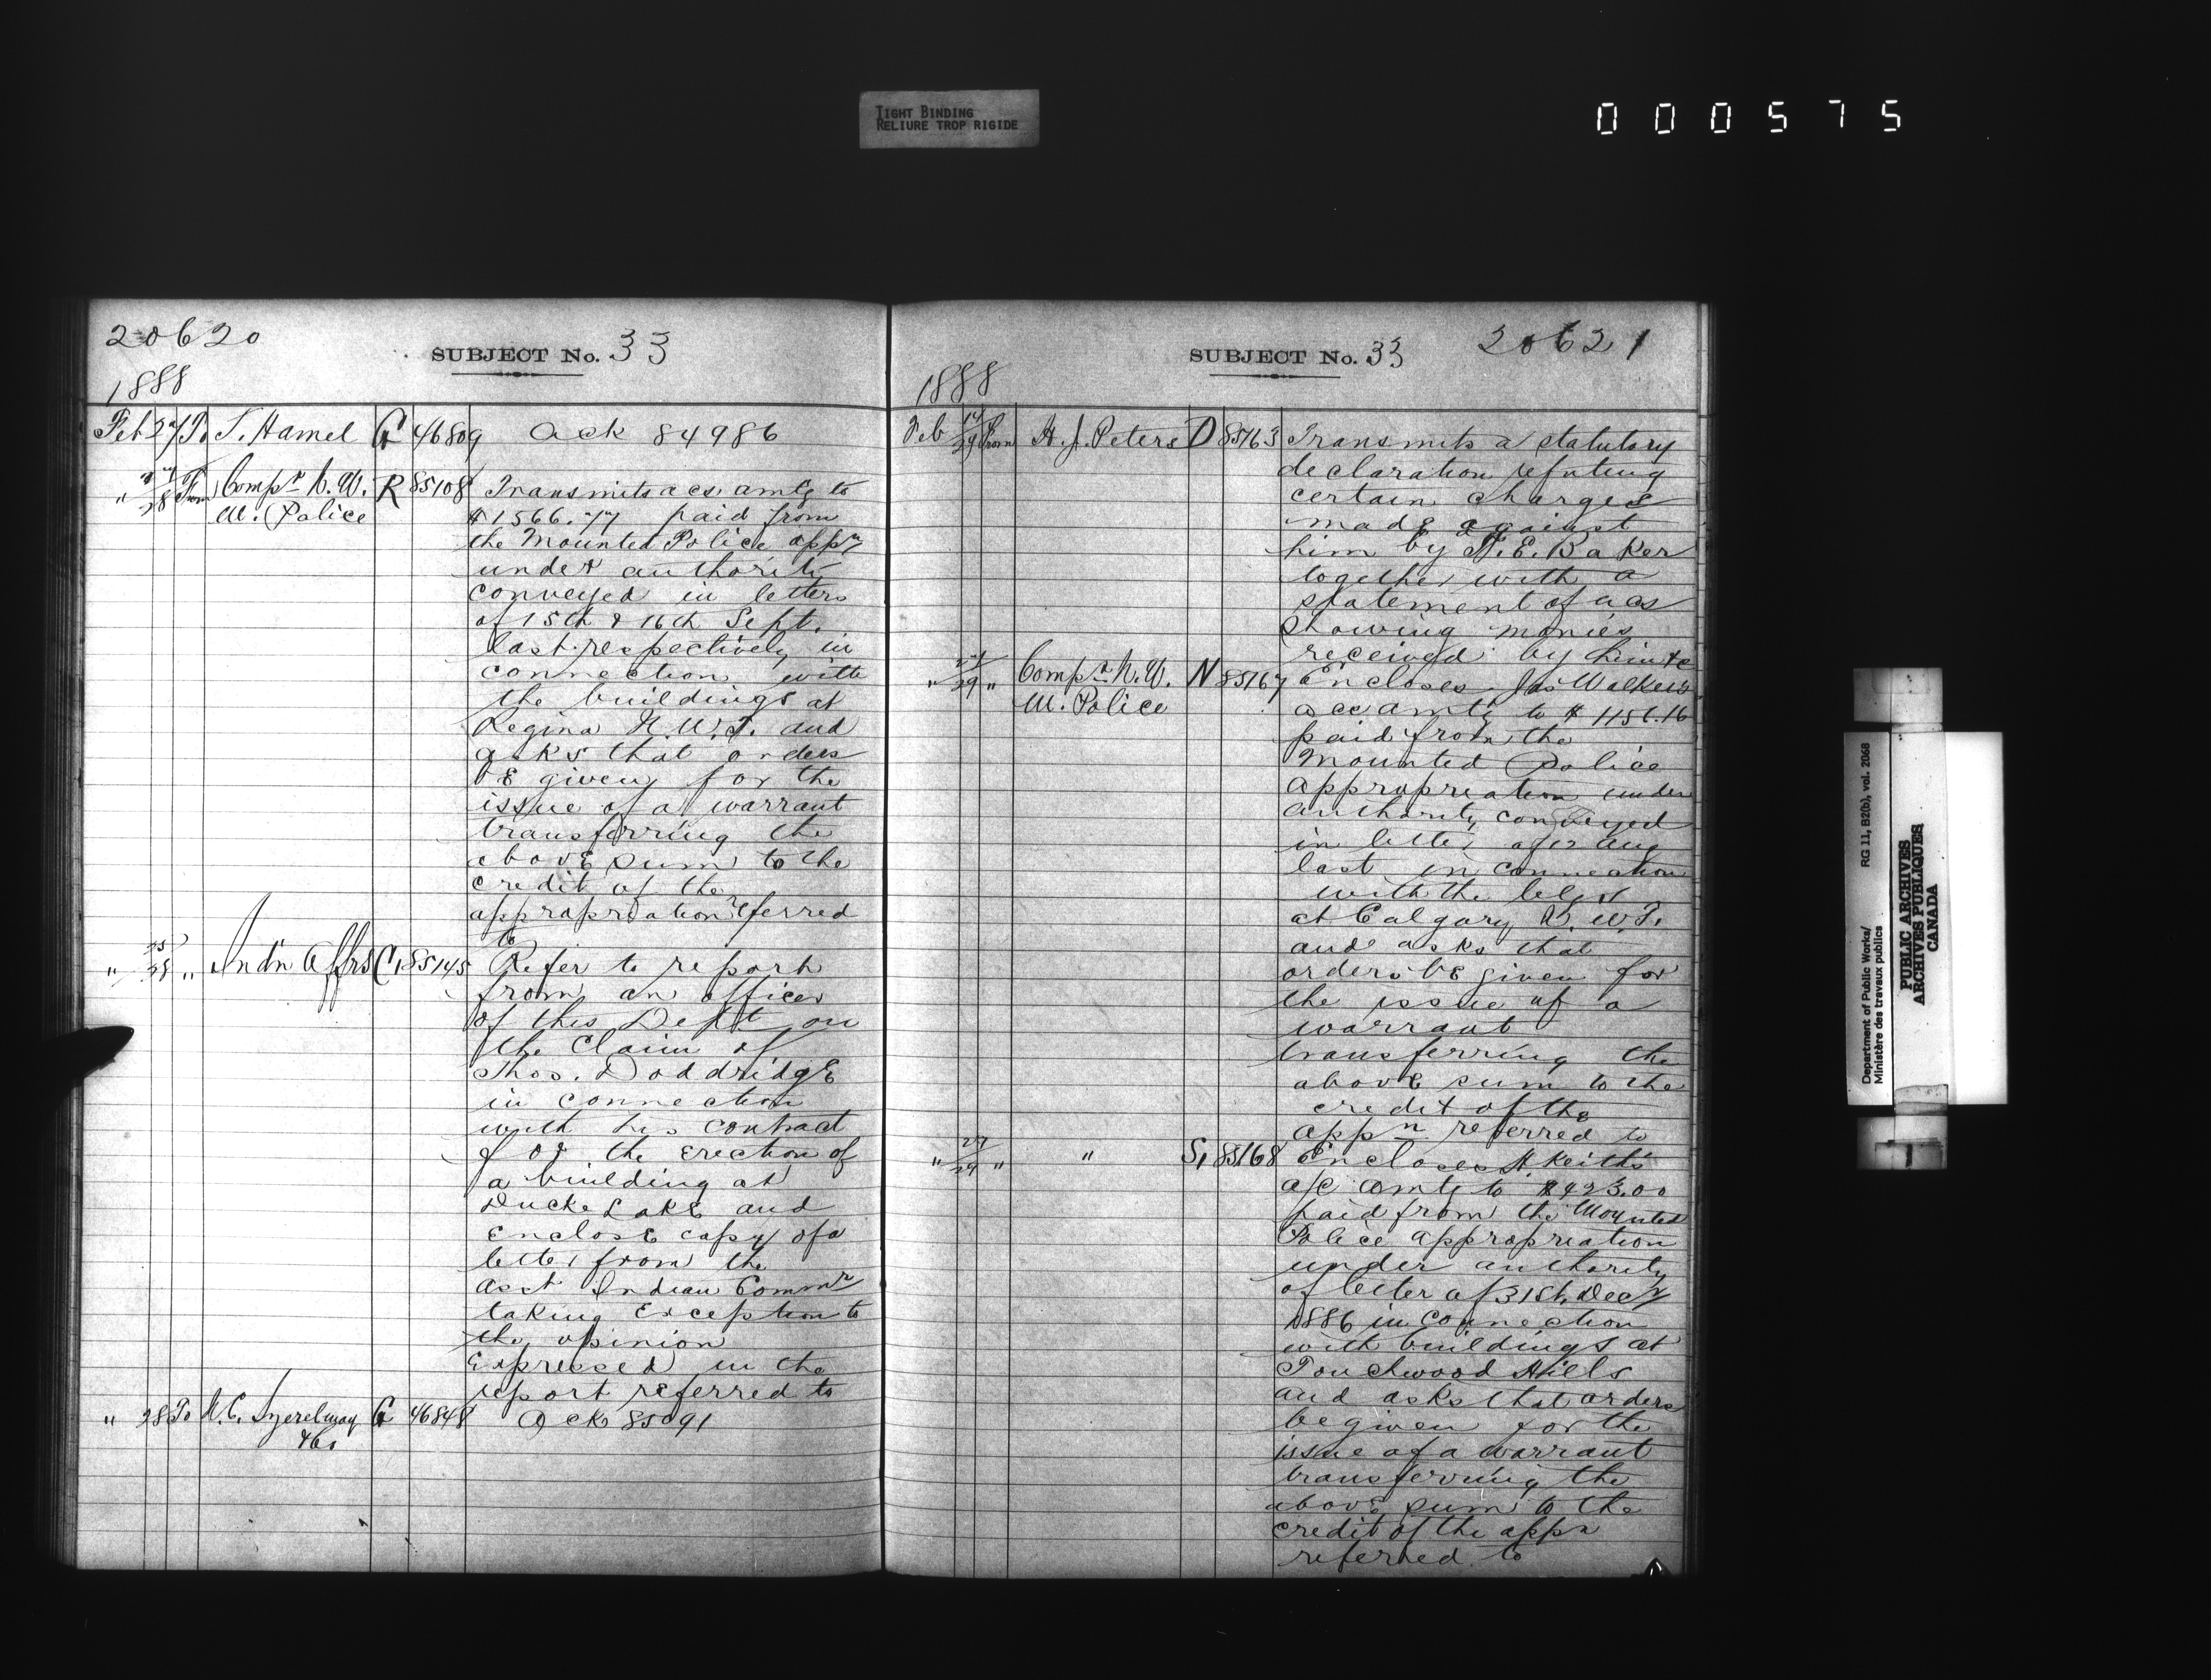 TIGHT BINDING
RELIURE TROP RIGIDE
000575
20620
SUBJECT No. 33
1888
Feb 27 To T. Hamel G 46809 Ack 84986
" 27/28 From Compr N. W. M. Police R 85108 Transmits acs. amtg to
$1566.77 paid from
the Mounted Police appn
under authority
conveyed in letters
of 15th & 16th Sept.
last respectively in
connection with
the buildings at
Regina N.W.T. and
asks that orders
be given for the
issue of a warrant
transferring the
above sum to the
credit of the
appropriation referred
to
" 25/28 " Indn Affrs C1 85145 Refer to report
from an officer
of this Dept on
the claim of
Thos. Doddridge
in connection
with his contract
for the erection of
a building at
Duck Lake and
enclose copy of a
letter from the
Asst Indian Commr
taking exception to
the opinion
expressed in the
report referred to
" 28 To G 46848 Ack 85091
20621
SUBJECT No. 33
1888
Feb 29 From H. J. Peters D 85163 Transmits a statutory
declaration refuting
certain charges
made against
him by H. E. Baker
together with a
statement of acs
showing monies
received by him &c
" 27/29 " Compr N. W. M. Police N 85167 Encloses Jas Walker's
acc amtg to $1156.16
paid from the
Mounted Police
appropriation under
authority conveyed
in letter of 12 Aug
last in connection
with the bldgs
at Calgary N. W. T.
and asks that
orders be given for
the issue of a
warrant
transferring the
above sum to the
credit of the
appn referred to
" 27/29 " " S1 85168 Encloses H. Keith's
a/c amtg to $923.00
paid from the Mounted
Police appropriation
under authority
of letter of 31st Decr
1886 in connection
with buildings at
Touchwood Hills
and asks that orders
be given for the
issue of a warrant
transferring the
above sum to the
credit of the appn
referred to
Department of Public Works/ RG 11, B2(b), vol. 2068
Ministère des travaux publics
PUBLIC ARCHIVES
ARCHIVES PUBLIQUES
CANADA